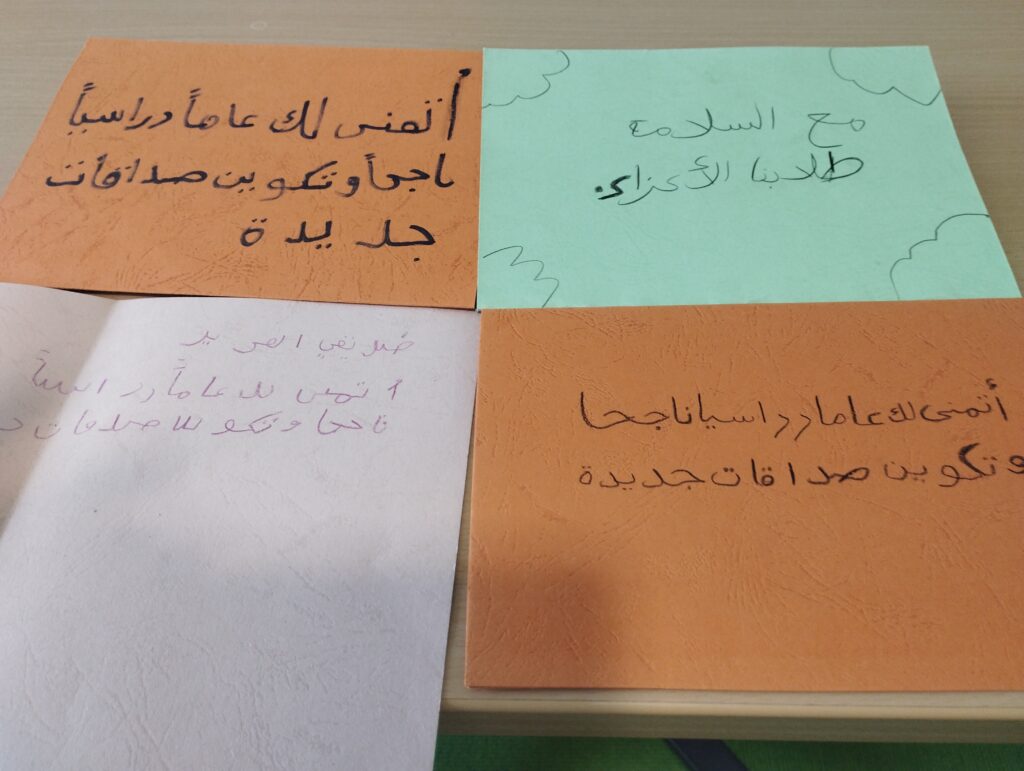 أتمنى لك عاماً دراسياً
ناجحاً وتكوين صداقات
جديدة
مع السلامة
طلابنا الأعزاء.
أتمنى لك عاماً دراسياً
ناجحا وتكو
أتمنى لك عاما دراسيا ناجحا
وتكوين صداقات جديدة